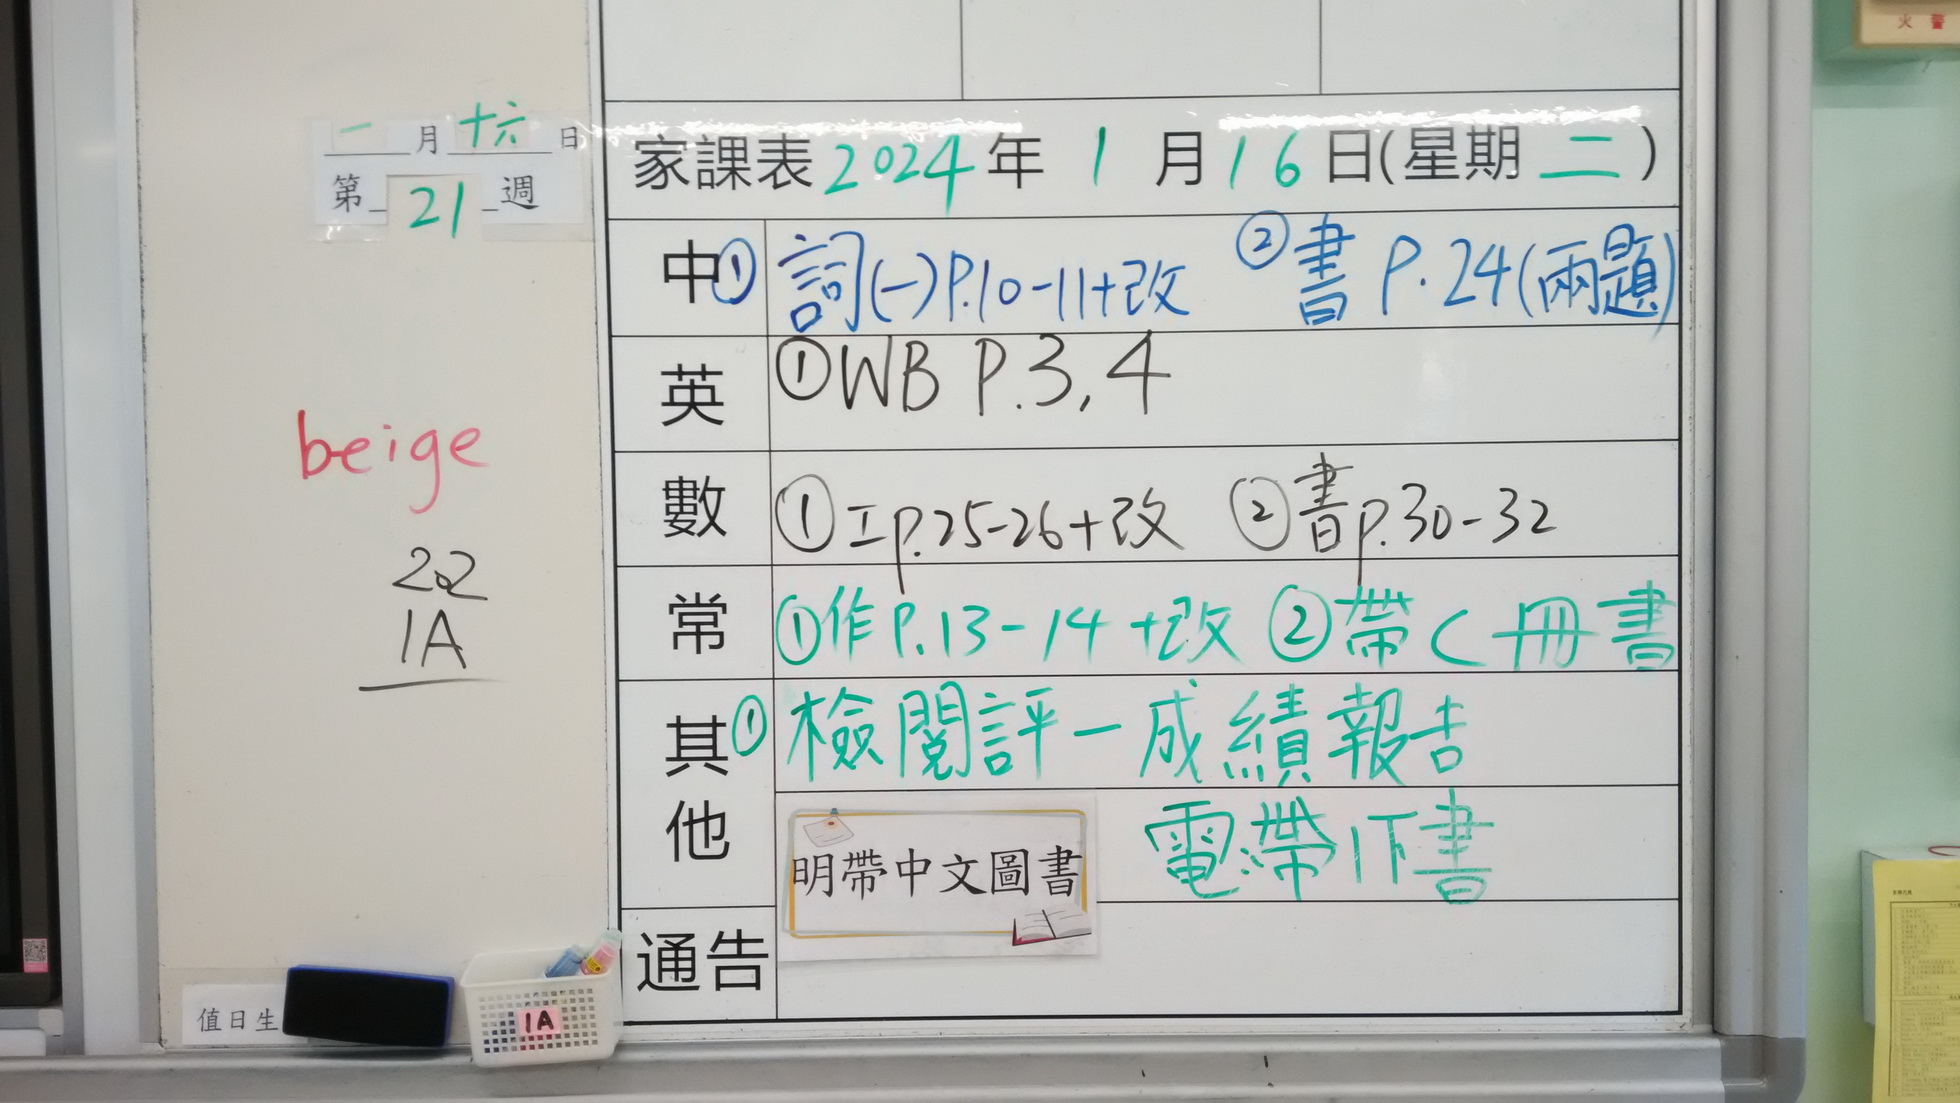 火 警
一月十六日
第21週
beige
22
1A
值日生
1A
家課表 2024年 1月16日(星期二)
中 ① 詞(一)P.10-11+改 ② 書 P.24(兩題)
英 ① WB P.3,4
數 ① 工p.25-26+改 ② 書p.30-32
常 ① 作P.13-14+改 ② 帶C冊書
其他 ① 檢閱評一成績報告
明帶中文圖書
電:帶1下書
通告